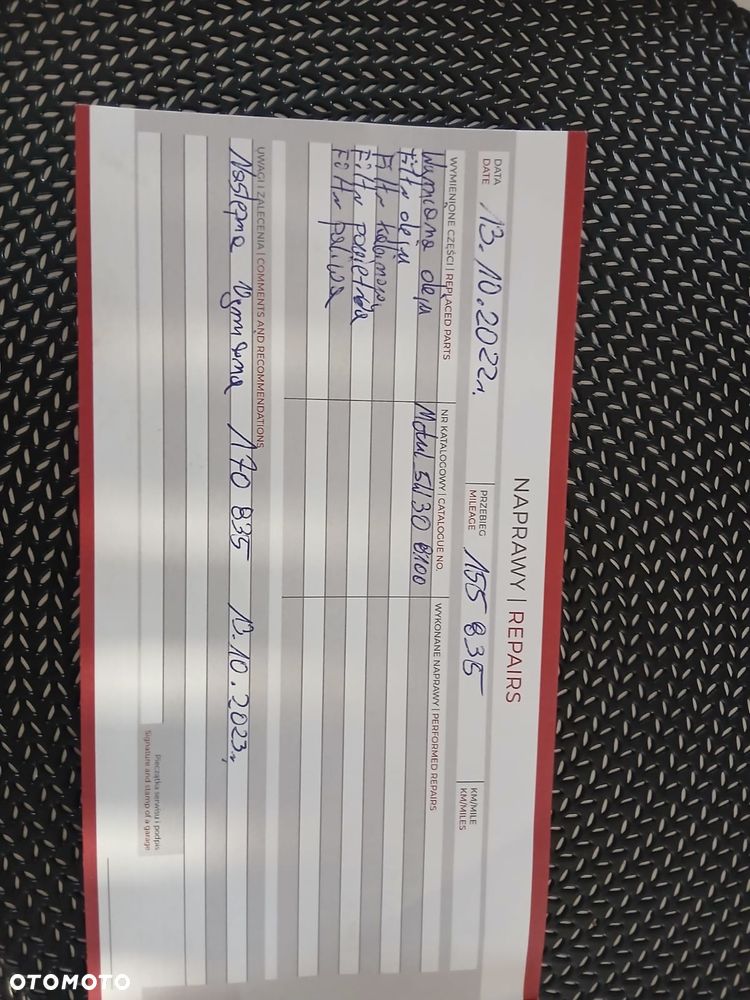 NAPRAWY | REPAIRS
DATA
DATE
13.10.2022r.
PRZEBIEG
MILEAGE
155 835
KM/MILE
KM/MILES
WYMIENIONE CZĘŚCI | REPLACED PARTS
NR KATALOGOWY | CATALOGUE NO.
WYKONANE NAPRAWY | PERFORMED REPAIRS
Wymiana oleju
Motul 5W30 8100
Filtr oleju
Filtr kabinowy
Filtr powietrza
Filtr paliwa
UWAGI I ZALECENIA | COMMENTS AND RECOMMENDATIONS
Następna Wymiana 170 835 13.10.2023r,
Pieczątka serwisu i podpis
Signature and stamp of a garage
OTOMOTO